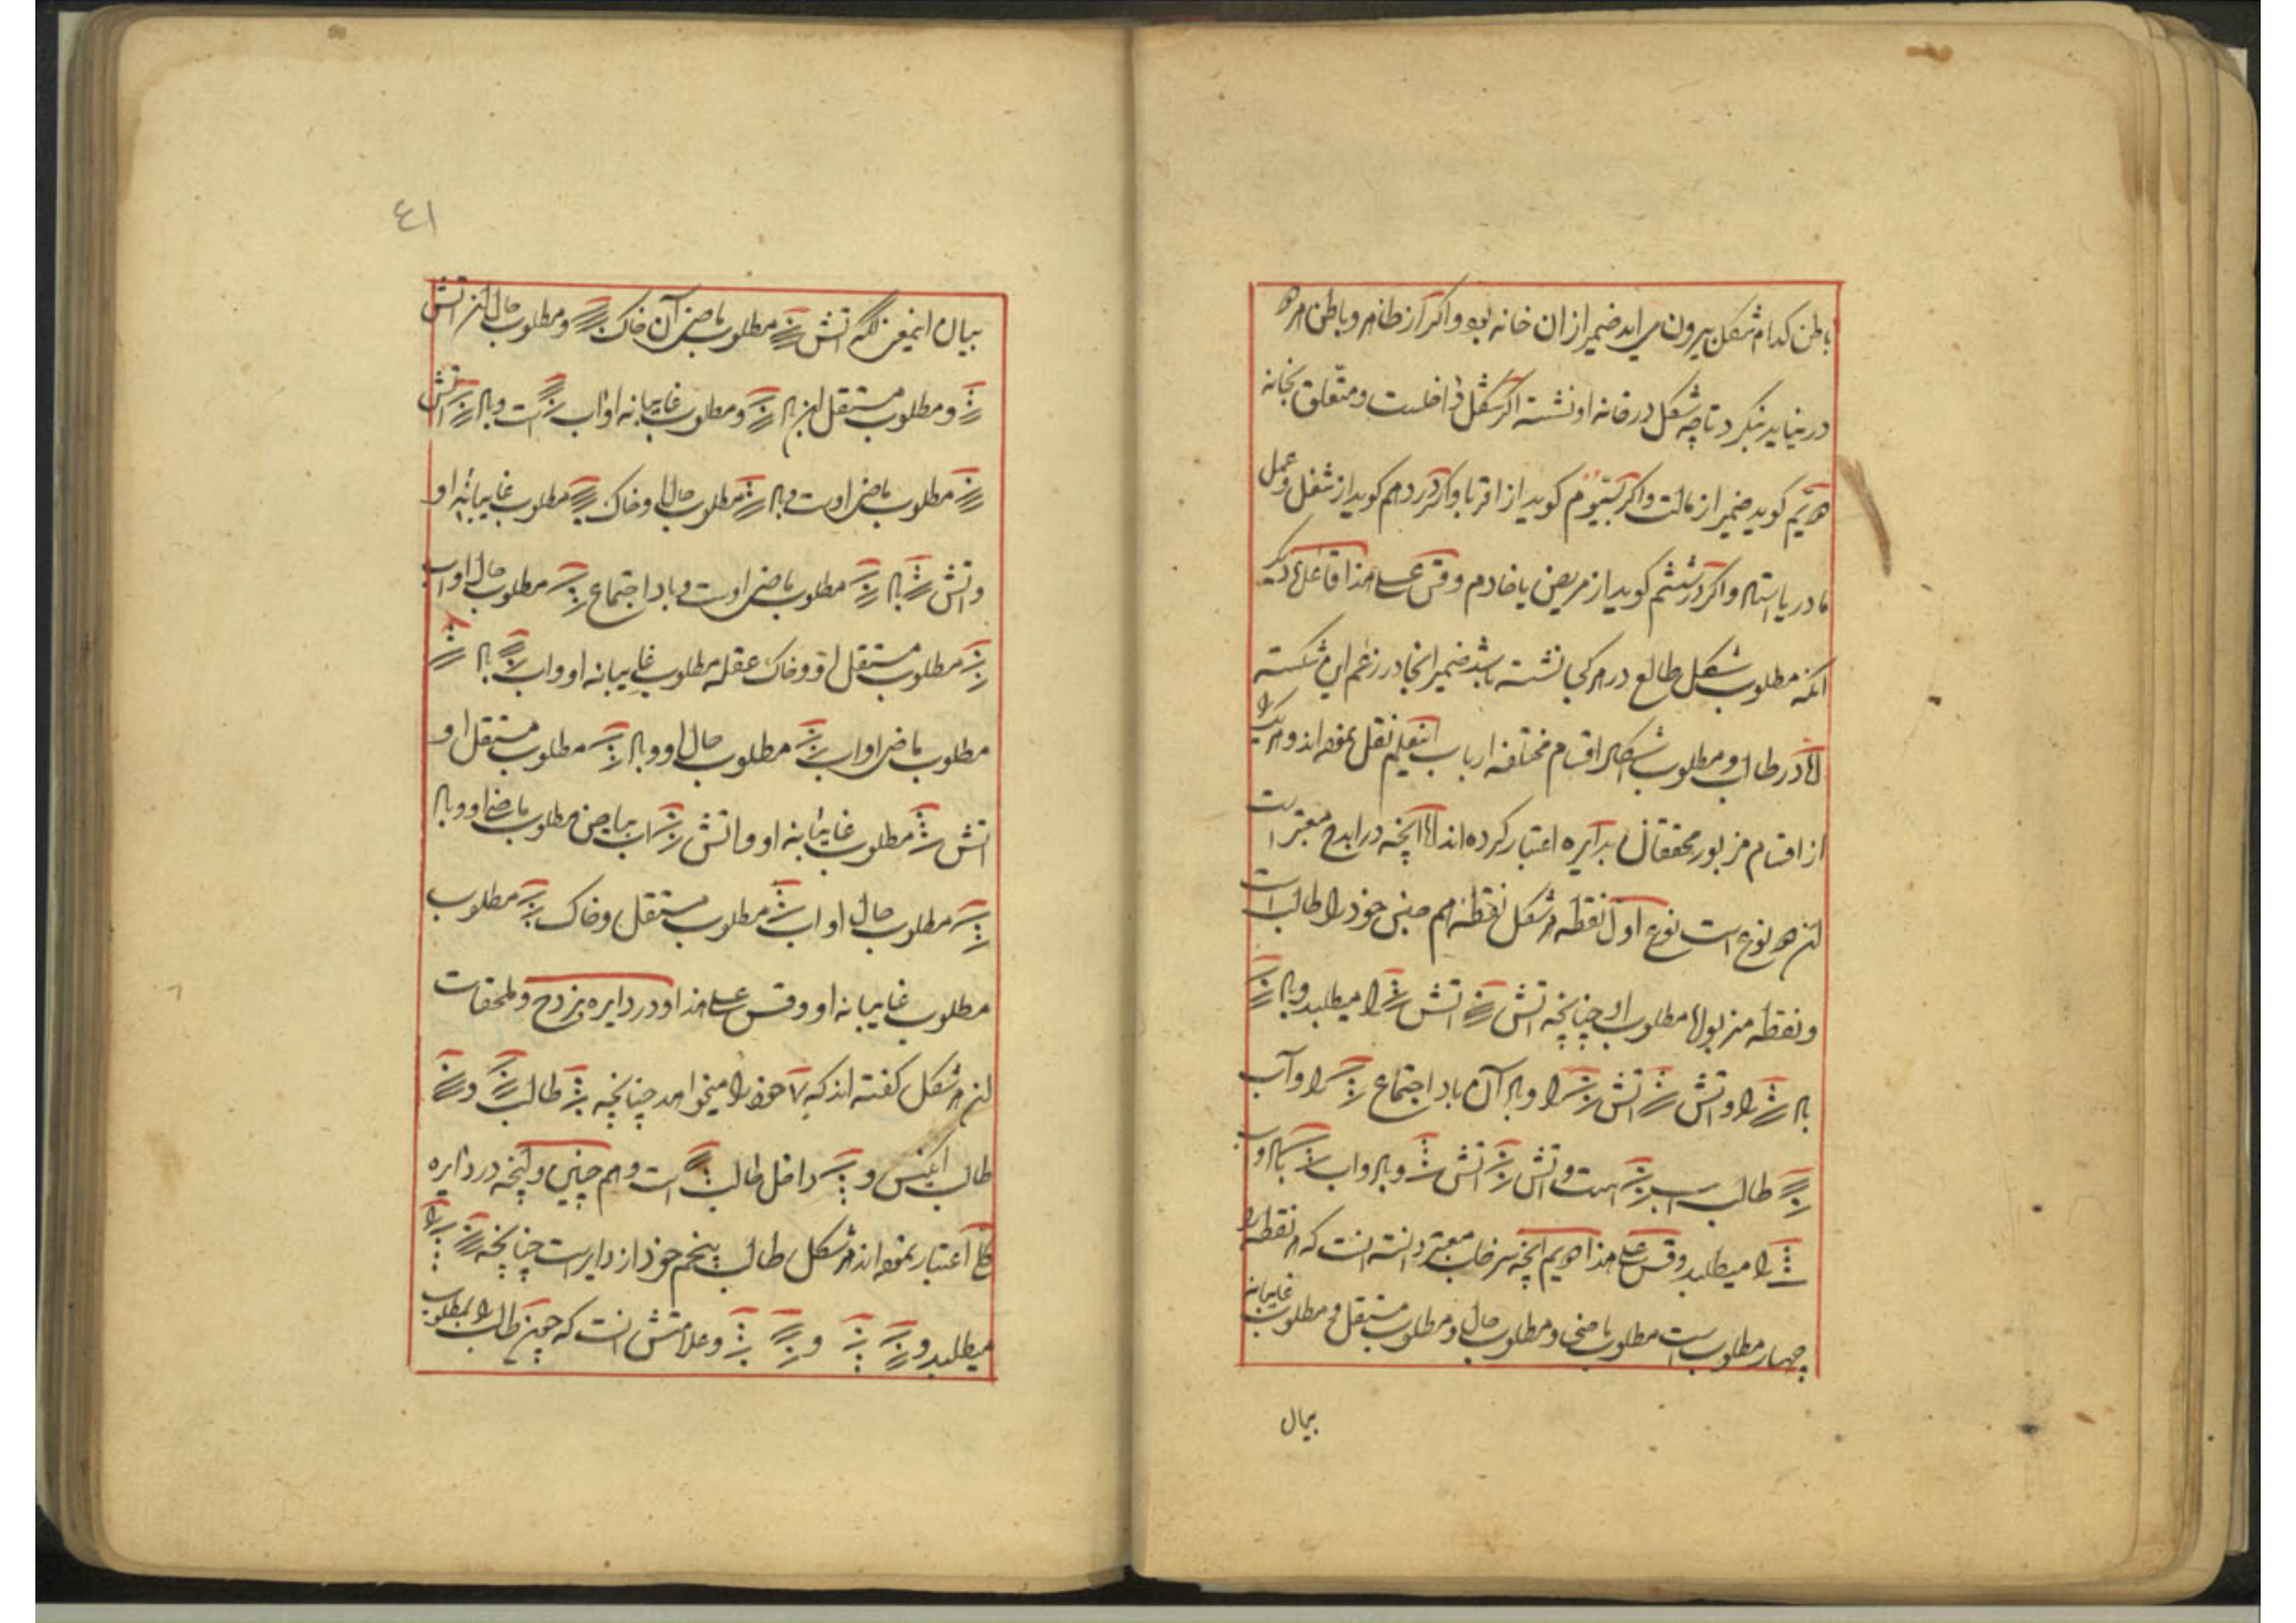 باطن کدام شکل بیرون می اید ضمیر از ان خانه بود و اکر از ظاهر و باطن هر دو
در نیاید بنکرد تا چه شکل در خانه او نشسته اکر شکل داخلست و متعلق بخانه
دویم کوید ضمیر از مالست و اکر بسیوم کوید از اقربا و اکر در دهم کوید از شغل و عمل
مادر یا استاد و اکر در ششم کوید از مریض یا خادم و قس علی هذا قاعدۀ دیکر
انکه مطلوب شکل طالع در هر کجا نشسته باشد ضمیر انجا در زعم این شکسته
اما در طالب و مطلوب اشکال اقسام مختلفه ارباب اینعلم نقل نموده اند و هر یک را
از اقسام مزبور محققان بدایره اعتبار کرده اند اما انچه در ابدح معتبر است
این دو نوع است نوع اول نقطه هر شکل نقطه هم جنس خود را طالب است
و نقطه مزبور مطلوب او چنانچه اتش اتش را میطلبد و باد
باد را و اتش اتش را و باد آن باد اجتماع را و آب
طالب است و اتش اتش و باد و اب
را میطلبد و قس علی هذا دویم انچه سرخاب معتبر دانسته انست که هر نقطه را
چهار مطلوب است مطلوب ماضی و مطلوب حال و مطلوب مستقل و مطلوب غایبانه
بیان
٤١
بیان اینمعنی انکه اتش مطلوب ماضی آن خاک و مطلوب حال این اتش
و مطلوب مستقل این باد و مطلوب غایبانه او اب است و باد اتش
مطلوب ماضی اوست و باد مطلوب حال او خاک مطلوب غایبانه او
و اتش باد مطلوب ماضی اوست و باد اجتماع مطلوب حال او اب
مطلوب مستقل او و خاک عقله مطلوب غایبانه او و اب باد
مطلوب ماضی او اب مطلوب حال او و باد مطلوب مستقل او
اتش مطلوب غایبانه او و اتش اب بیاض مطلوب ماضی او و باد
مطلوب حال او اب مطلوب مستقل و خاک مطلوب
مطلوب غایبانه او و قس علی هذا و در دایره بزدح و ملحقات
این هر شکل کفته اند که ۷ خود را میخواهد چنانچه طالب و
طالب انکیس و داخل طالب است و هم چنین و انچه در دایره
اعتبار نموده اند هر شکل طالب پنجم خود از دایر است چنانچه را
میطلبد و و و علامتش انست که چون طالب را بمطلوب